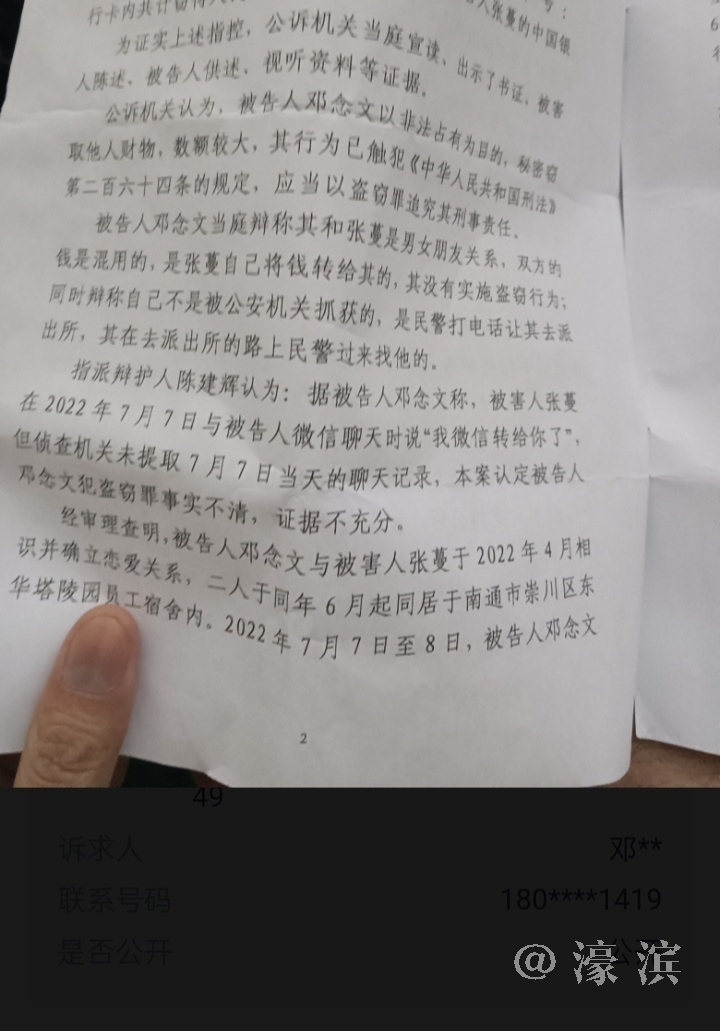 行卡内共计窃得人
号:
人张蔓的中国银
为证实上述指控,公诉机关当庭宣读、出示了书证、被害
人陈述、被告人供述、视听资料等证据。
公诉机关认为,被告人邓念文以非法占有为目的,秘密窃
取他人财物,数额较大,其行为已触犯《中华人民共和国刑法》
第二百六十四条的规定,应当以盗窃罪追究其刑事责任。
被告人邓念文当庭辩称其和张蔓是男女朋友关系,双方的
钱是混用的,是张蔓自己将钱转给其的,其没有实施盗窃行为;
同时辩称自己不是被公安机关抓获的,是民警打电话让其去派
出所,其在去派出所的路上民警过来找他的。
指派辩护人陈建辉认为:据被告人邓念文称,被害人张蔓
在2022年7月7日与被告人微信聊天时说“我微信转给你了”,
但侦查机关未提取7月7日当天的聊天记录,本案认定被告人
邓念文犯盗窃罪事实不清,证据不充分。
经审理查明,被告人邓念文与被害人张蔓于2022年4月相
识并确立恋爱关系,二人于同年6月起同居于南通市崇川区东
华塔陵园员工宿舍内。2022年7月7日至8日,被告人邓念文
2
49
诉求人 邓**
联系号码 180****1419
是否公开 公开
@濠滨